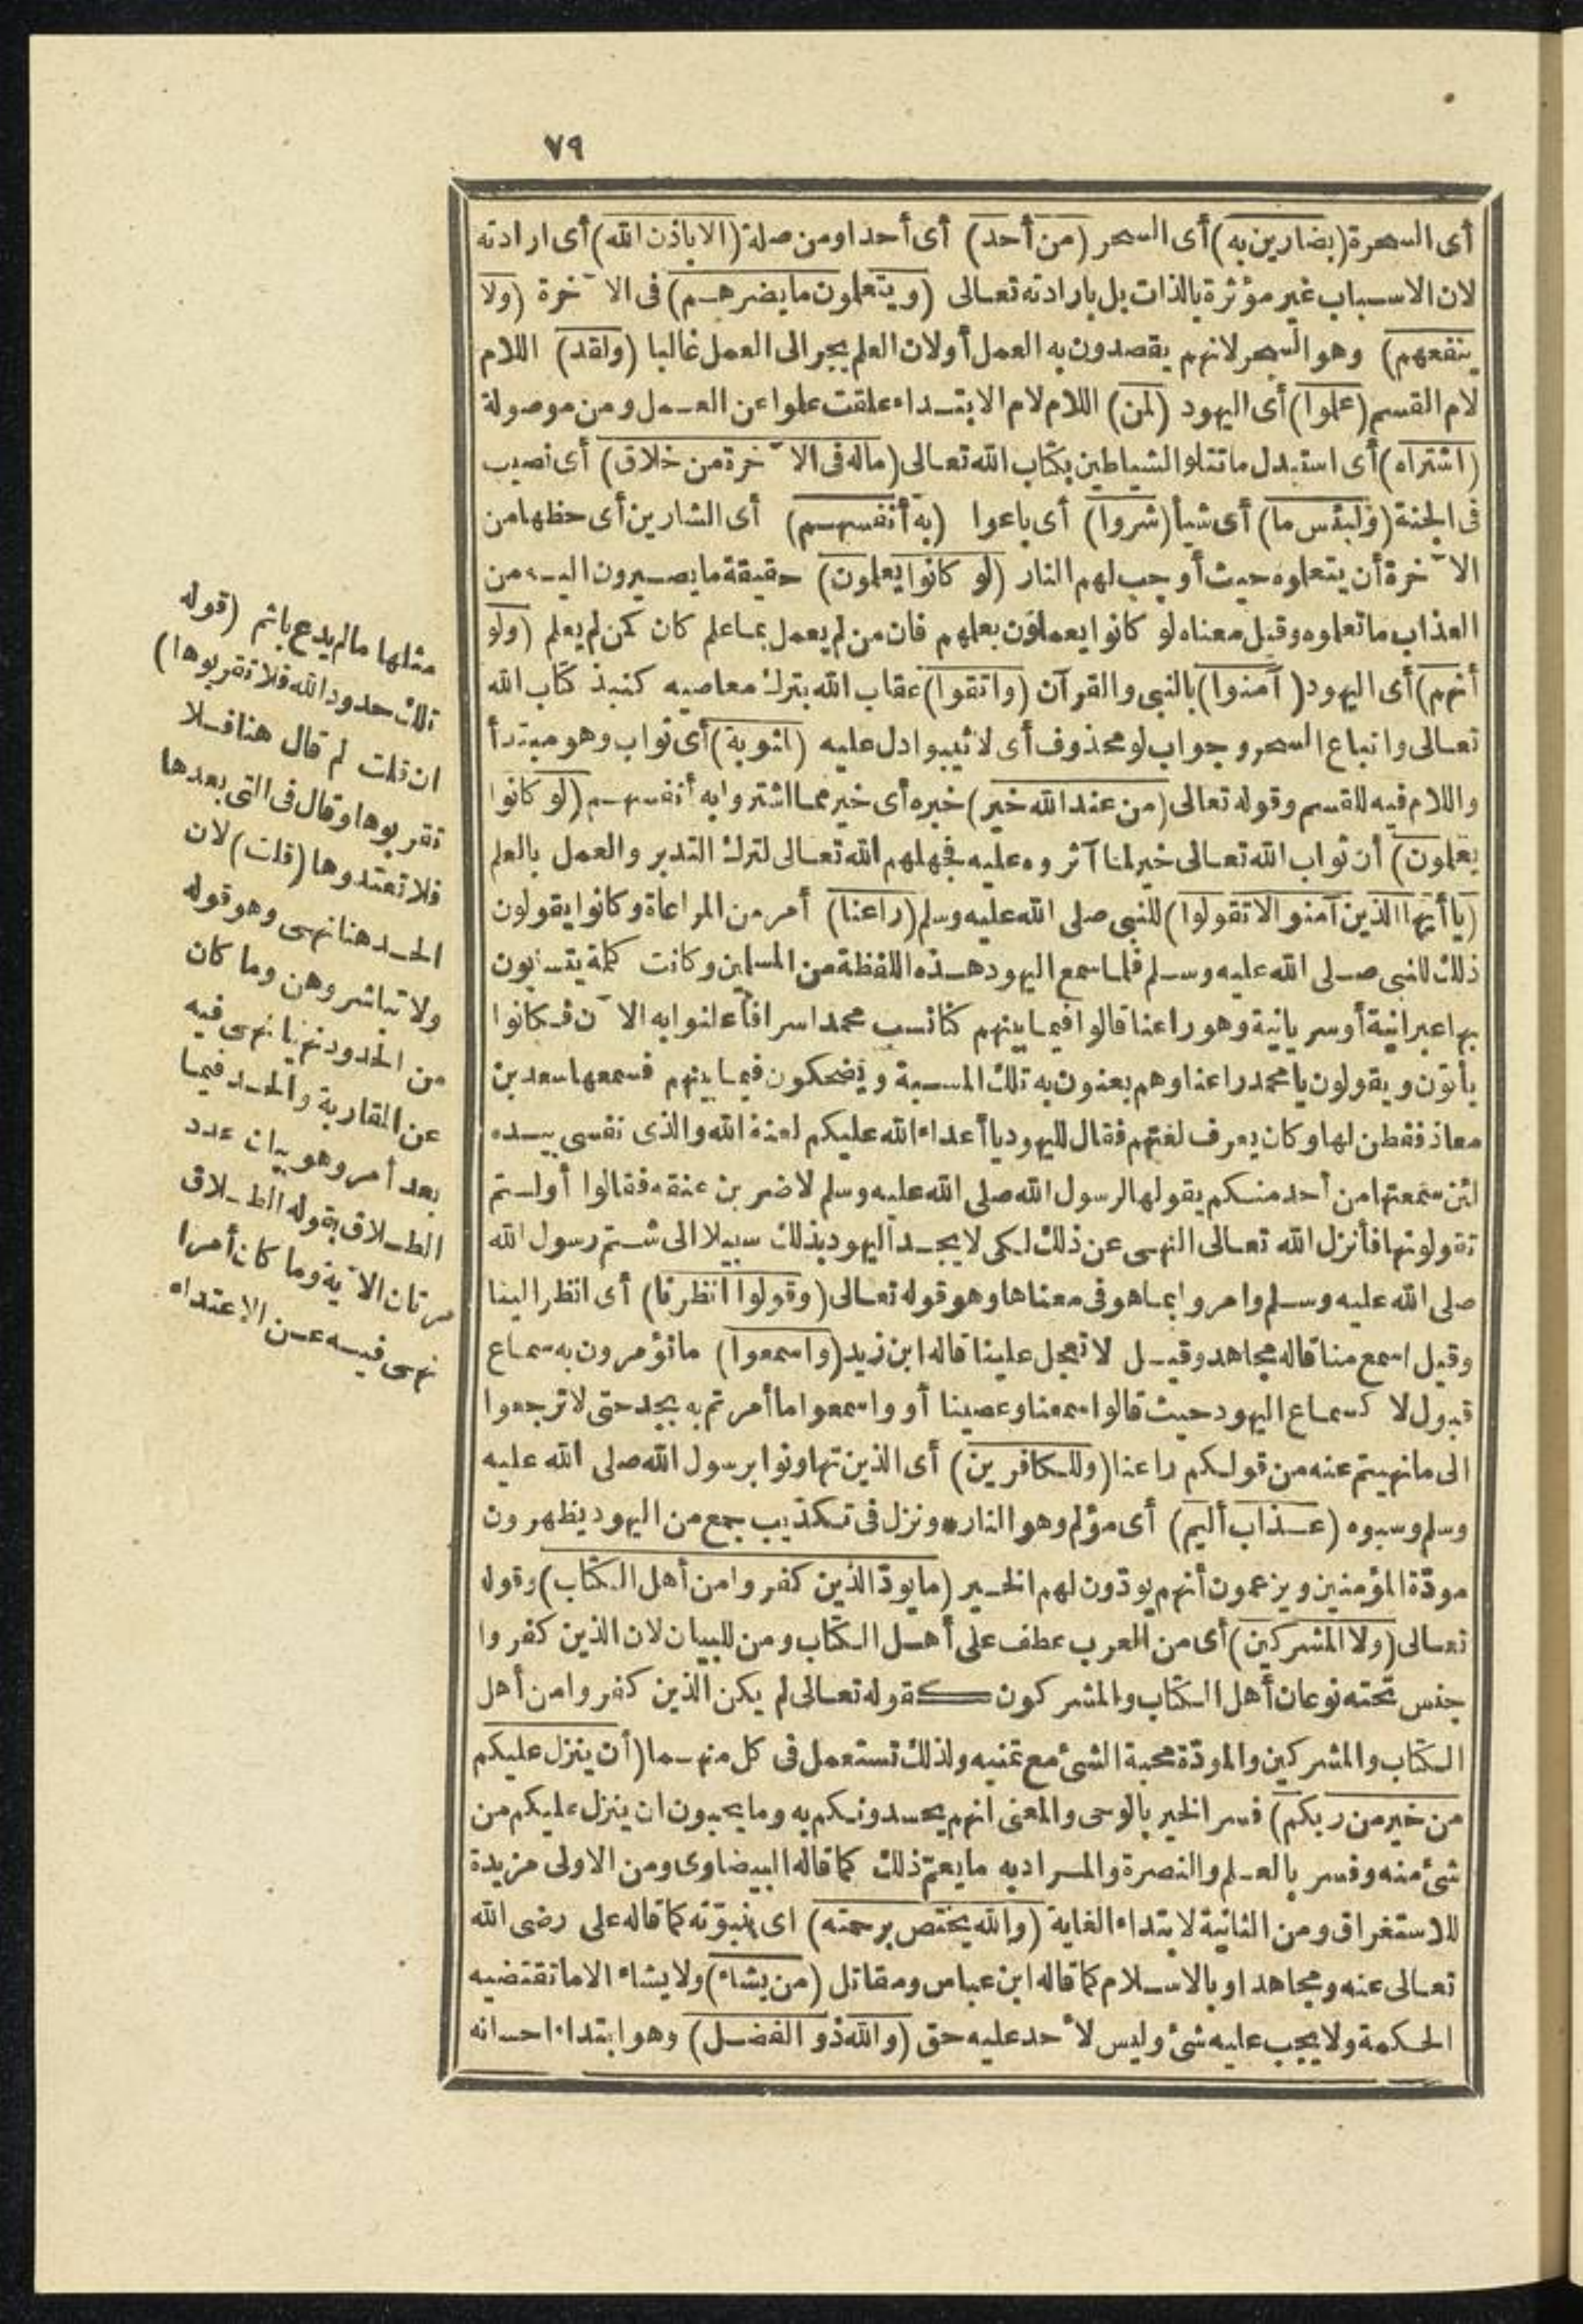 ٧٩
أى السحرة (بضارين به) أى السحر (من أحد) أى أحدا ومن صلة (الا باذن الله) أى ارادته
لان الاسباب غير مؤثرة بالذات بل بارادته تعالى (ويتعلمون ما يضرهم) فى الآخرة (ولا
ينفعهم) وهو السحر لانهم يقصدون به العمل أولان العلم يجر الى العمل غالبا (ولقد) اللام
لام القسم (علموا) أى اليهود (لمن) اللام لام الابتداء علقت علموا عن العمل ومن موصولة
(اشتراه) أى استبدل ما تتلو الشياطين بكتاب الله تعالى (ماله فى الآخرة من خلاق) أى نصيب
فى الجنة (ولبئس ما) أى شيأ (شروا) أى باعوا (به أنفسهم) أى الشارين أى حظها من
الآخرة أن يتعلموه حيث أوجب لهم النار (لو كانوا يعلمون) حقيقة ما يصيرون اليه من
العذاب ما تعلموه وقيل معناه لو كانوا يعملون بعلمهم فان من لم يعمل بما علم كان كمن لم يعلم (ولو
أنهم) أى اليهود (آمنوا) بالنبى والقرآن (واتقوا) عقاب الله بترك معاصيه كنبذ كتاب الله
تعالى واتباع السحر وجواب لو محذوف أى لاثيبوا دل عليه (لمثوبة) أى ثواب وهو مبتدأ
واللام فيه للقسم وقوله تعالى (من عند الله خير) خبره أى خير مما اشتروا به أنفسهم (لو كانوا
يعلمون) أن ثواب الله تعالى خير لما آثروه عليه فجهلهم الله تعالى لترك التدبر والعمل بالعلم
(يا أيها الذين آمنوا لا تقولوا) للنبى صلى الله عليه وسلم (راعنا) أمر من المراعاة وكانوا يقولون
ذلك للنبى صلى الله عليه وسلم فلما سمع اليهود هذه اللفظة من المسلمين وكانت كلمة يتسابون
بها عبرانية أوسريانية وهو راعنا قالوا فيما بينهم كنا نسب محمدا سرا فأعلنوا به الآن فكانوا
يأتون ويقولون يا محمد راعنا وهم يعنون به تلك المسبة ويضحكون فيما بينهم فسمعها سعد بن
معاذ ففطن لها وكان يعرف لغتهم فقال لليهود يا أعداء الله عليكم لعنة الله والذى نفسى بيده
لئن سمعتها من أحد منكم يقولها لرسول الله صلى الله عليه وسلم لاضربن عنقه فقالوا أولستم
تقولونها فأنزل الله تعالى النهى عن ذلك لكى لا يجد اليهود بذلك سبيلا الى شتم رسول الله
صلى الله عليه وسلم وامروا بما هو فى معناها وهو قوله تعالى (وقولوا انظرنا) أى انظر الينا
وقيل اسمع منا قاله مجاهد وقيل لا تعجل علينا قاله ابن زيد (واسمعوا) ما تؤمرون به سماع
قبول لا كسماع اليهود حيث قالوا سمعنا وعصينا أو واسمعوا ما أمرتم به بجد حتى لا ترجعوا
الى ما نهيتم عنه من قولكم راعنا (وللكافرين) أى الذين تهاونوا برسول الله صلى الله عليه
وسلم وسبوه (عذاب أليم) أى مؤلم وهو النار * ونزل فى تكذيب جمع من اليهود يظهرون
مودّة المؤمنين ويزعمون أنهم يودّون لهم الخير (ما يودّ الذين كفروا من أهل الكتاب) وقوله
تعالى (ولا المشركين) أى من العرب عطف على أهل الكتاب ومن للبيان لان الذين كفروا
جنس تحته نوعان أهل الكتاب والمشركون كقوله تعالى لم يكن الذين كفروا من أهل
الكتاب والمشركين والمودّة محبة الشئ مع تمنيه ولذلك تستعمل فى كل منهما (أن ينزل عليكم
من خير من ربكم) فسر الخير بالوحى والمعنى انهم يحسدونكم به وما يحبون ان ينزل عليكم من
شئ منه وفسر بالعلم والنصرة والمراد به ما يعمّ ذلك كما قاله البيضاوى ومن الاولى مزيدة
للاستغراق ومن الثانية لابتداء الغاية (والله يختص برحمته) اى بنبوّته كما قاله على رضى الله
تعالى عنه ومجاهد او بالاسلام كما قاله ابن عباس ومقاتل (من يشاء) ولا يشاء الا ما تقتضيه
الحكمة ولا يجب عليه شئ وليس لأحد عليه حق (والله ذو الفضل) وهو ابتداء احسانه
مثلها مالم يدع باثم (قوله
تلك حدود الله فلا تقربوها)
ان قلت لم قال هنا فلا
تقربوها وقال فى التى بعدها
فلا تعتدوها (قلت) لان
الحد هنا نهى وهو قوله
ولا تباشروهن وما كان
من الحدود نهيا نهى فيه
عن المقاربة والحد فيما
بعد أمر وهو بيان عدد
الطلاق بقوله الطلاق
مرتان الآية وما كان أمرا
نهى فيه عن الاعتداء